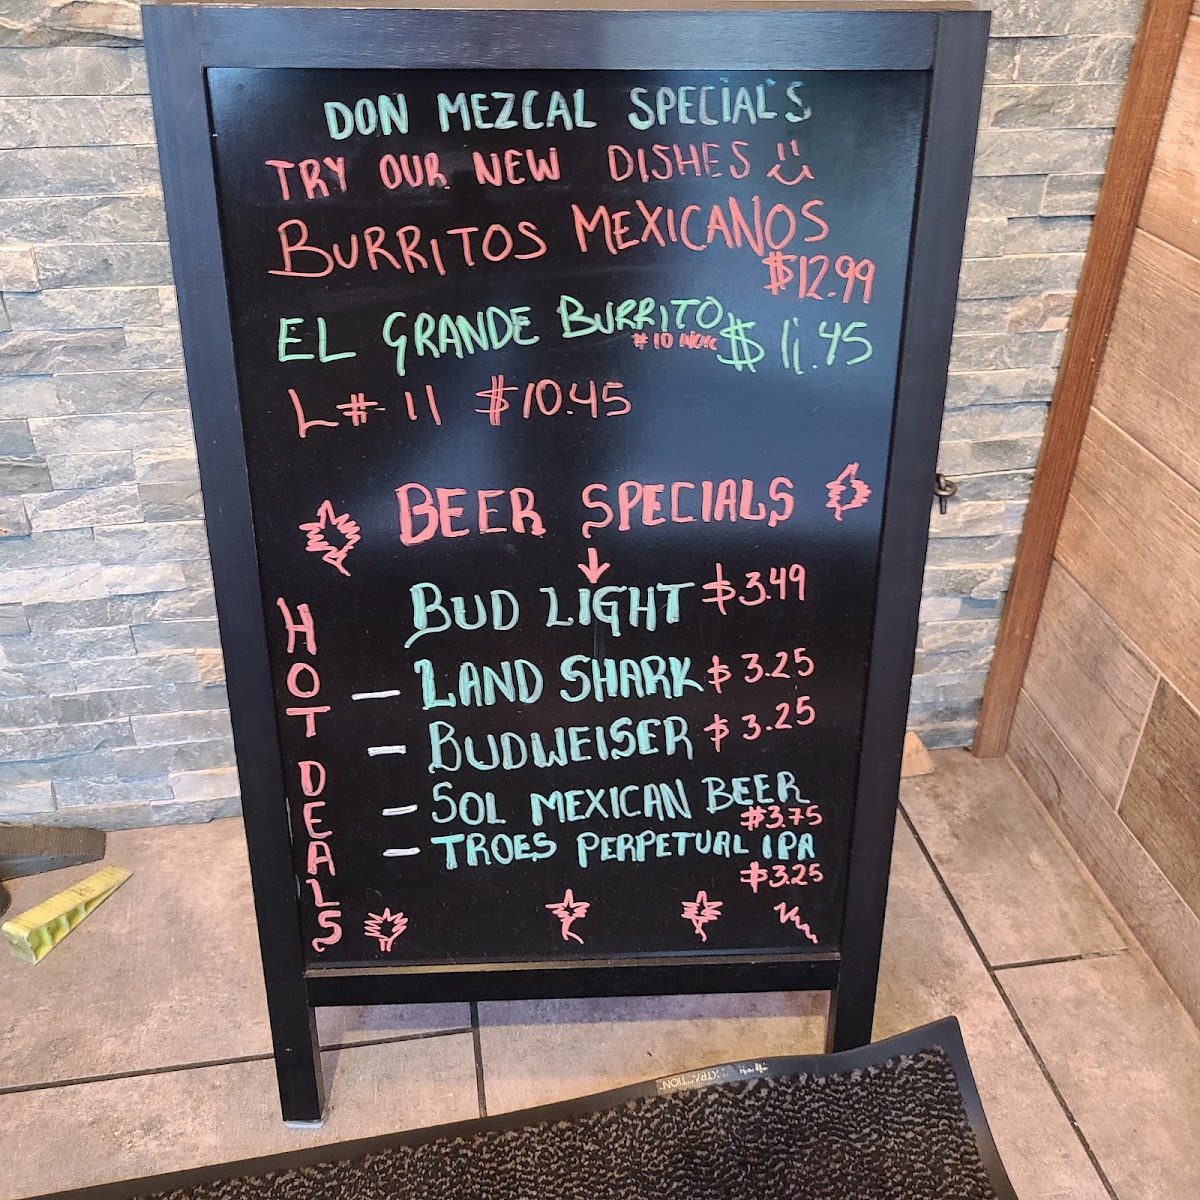 DON MEZCAL SPECIALS
TRY OUR NEW DISHES
BURRITOS MEXICANOS
$12.99
EL GRANDE BURRITO $11.45
#10
L# 11 $10.45
BEER SPECIALS
HOT DEALS
BUD LIGHT $3.49
LAND SHARK $3.25
BUDWEISER $3.25
SOL MEXICAN BEER
$3.75
TROES PERPETUAL IPA
$3.25